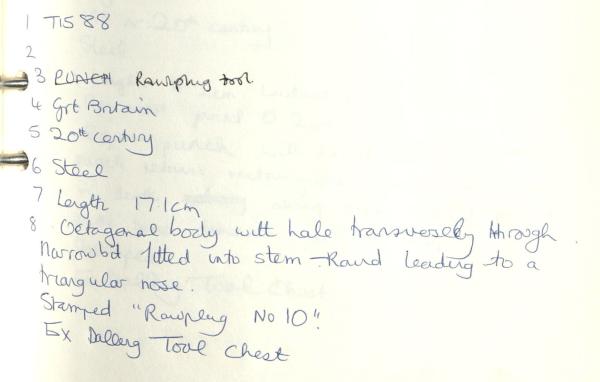 1 T1588
2
3 PUNCH Rawlplug tool
4 Grt Britain
5 20th century
6 Steel
7 Length 171cm
8 Octagonal body with hole transversely through.
Narrow bit fitted into stem - Round leading to a
triangular nose.
Stamped "Rawlplug No 10".
Ex Tool Chest